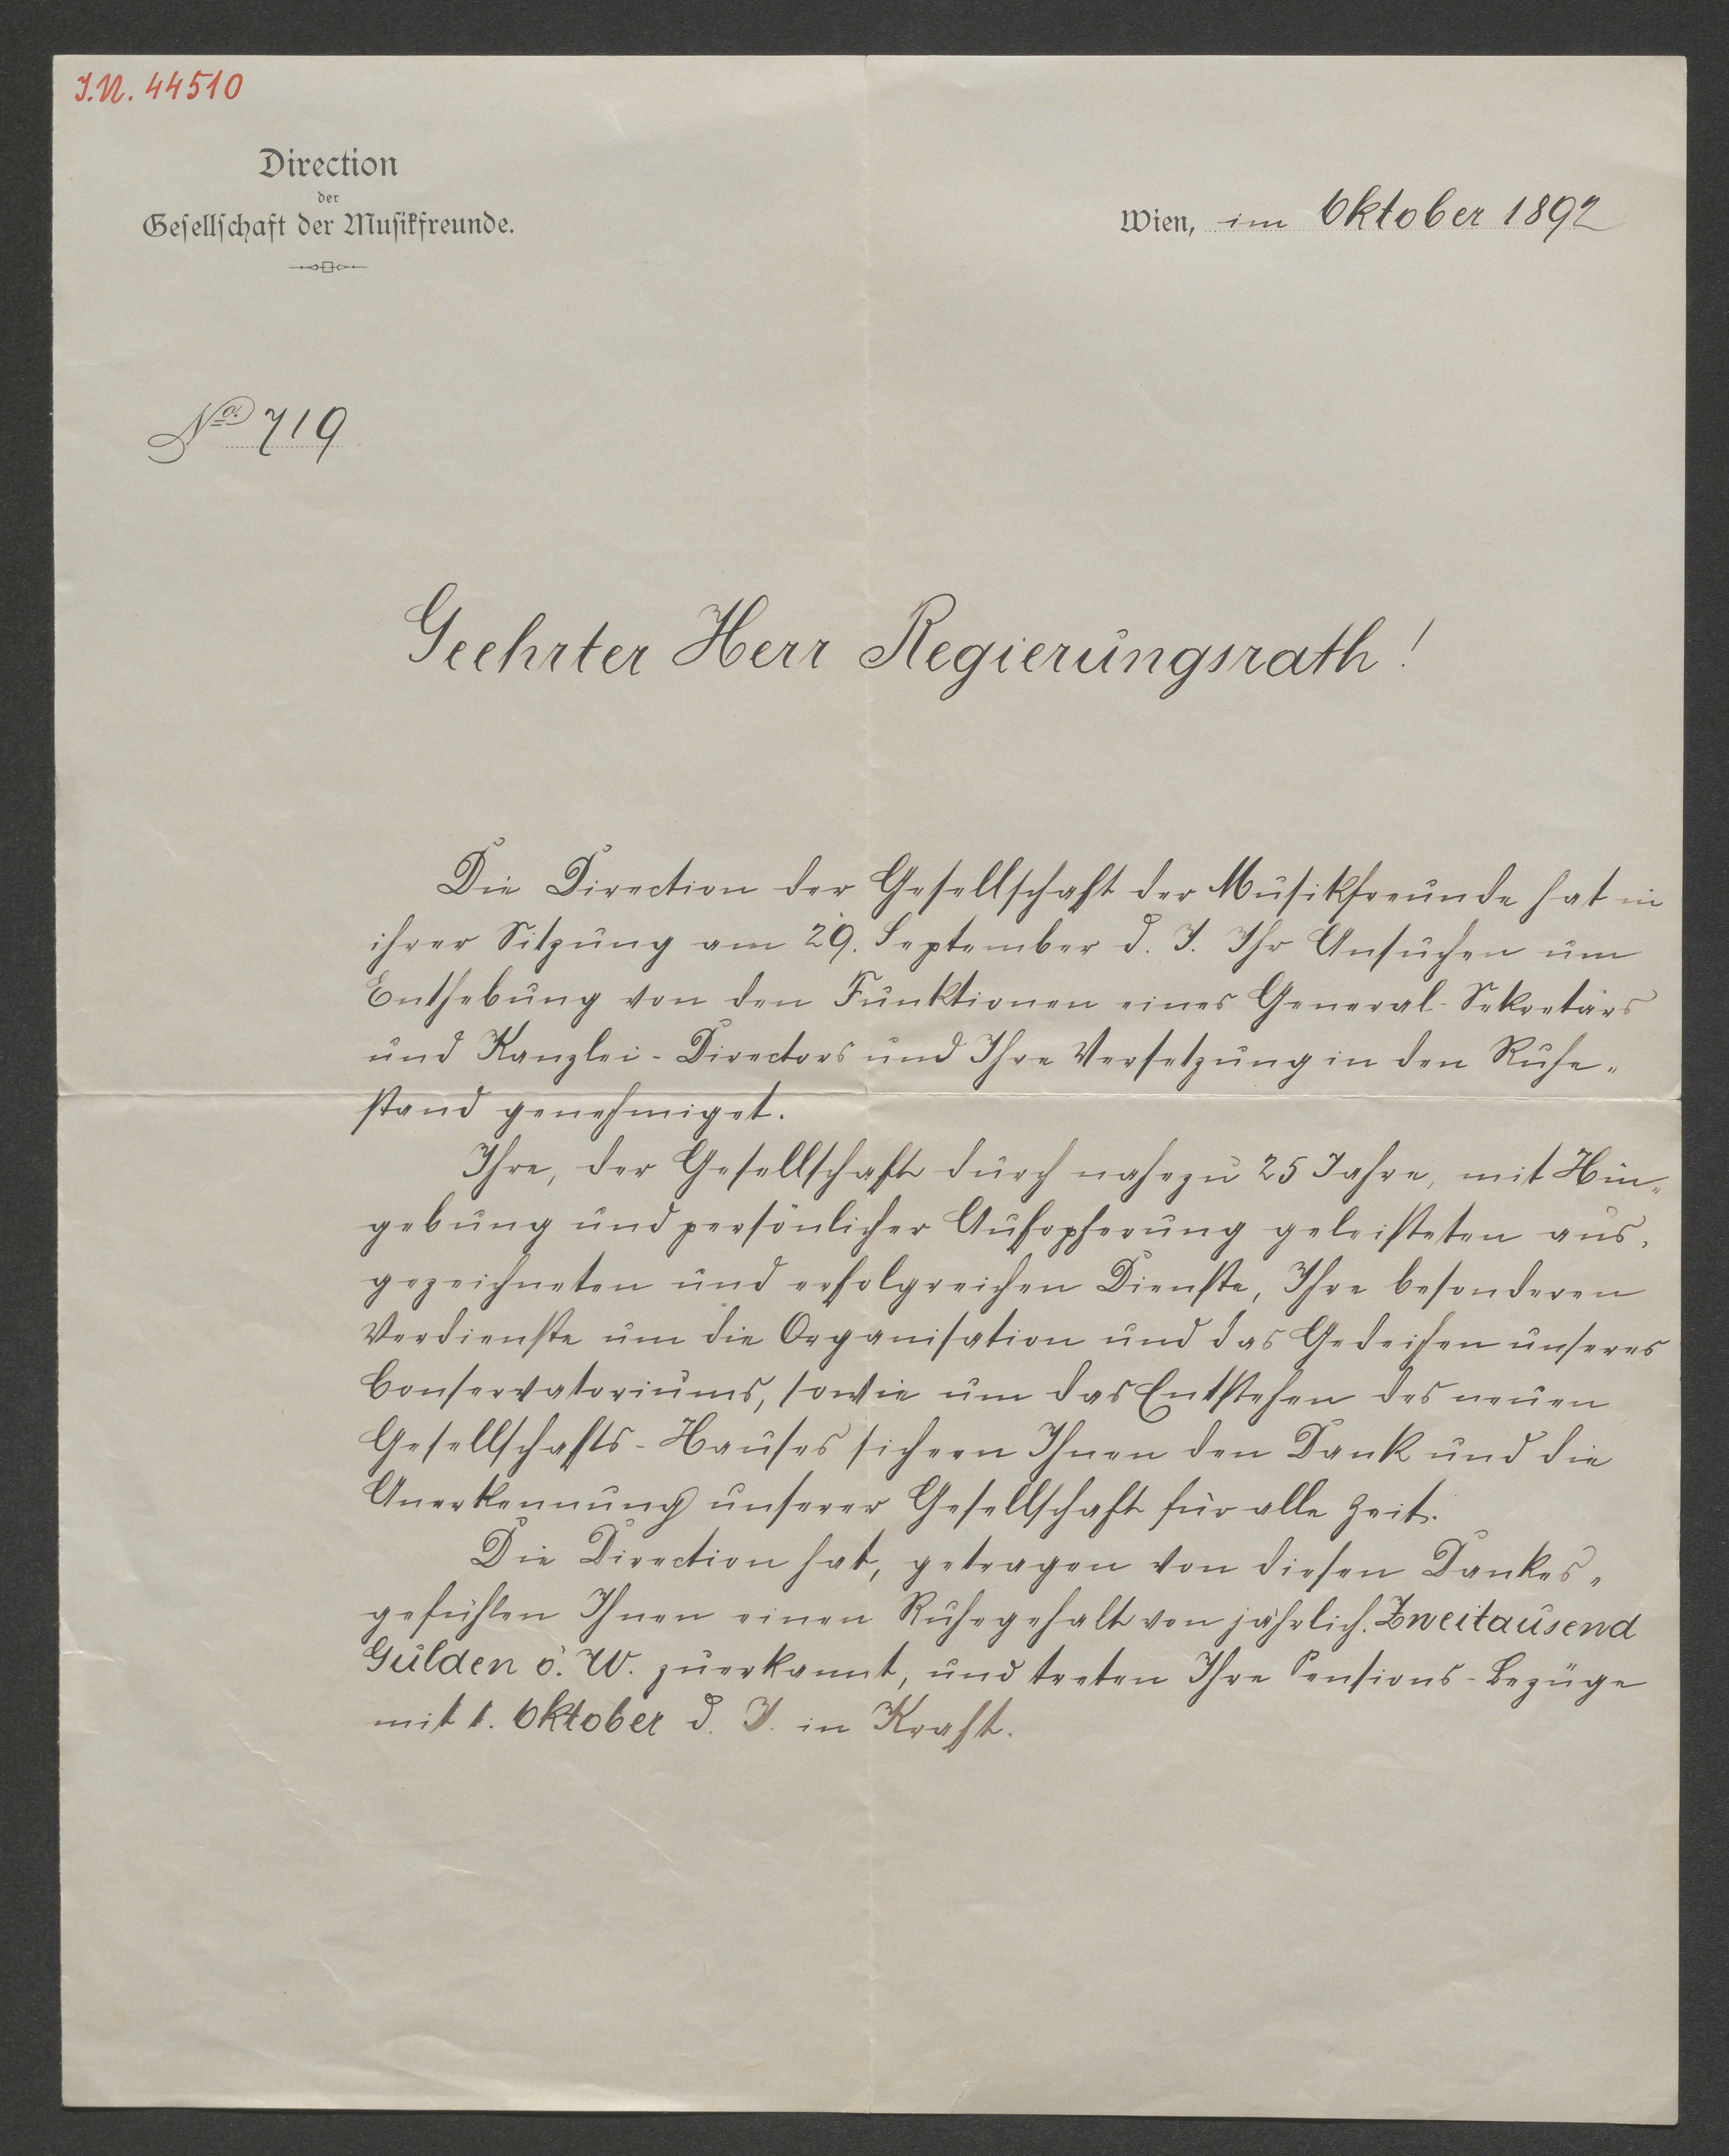 J.N. 44510
Direction
der
Gesellschaft der Musikfreunde.
Wien, im Oktober 1892
No. 719
Geehrter Herr Regierungsrath!
Die Direction der Gesellschaft der Musikfreunde hat in
ihrer Sitzung am 29. September d. J. Ihr Ansuchen um
Enthebung von den Funktionen eines General-Sekretärs
und Kanzlei-Directors und Ihre Versetzung in den Ruhe-
stand genehmiget.
Ihre, der Gesellschaft durch nahezu 25 Jahre, mit Hin-
gebung und persönlicher Aufopferung geleisteten aus-
gezeichneten und erfolgreichen Dienste, Ihre besonderen
Verdienste um die Organisation und das Gedeihen unseres
Conservatoriums, sowie um das Entstehen des neuen
Gesellschafts-Hauses sichern Ihnen den Dank und die
Anerkennung unserer Gesellschaft für alle Zeit.
Die Direction hat, getragen von diesen Dankes-
gefühlen Ihnen einen Ruhegehalt von jährlich. Zweitausend
Gulden ö. W. zuerkannt, und treten Ihre Pensions-Bezüge
mit 1. Oktober d. J. in Kraft.